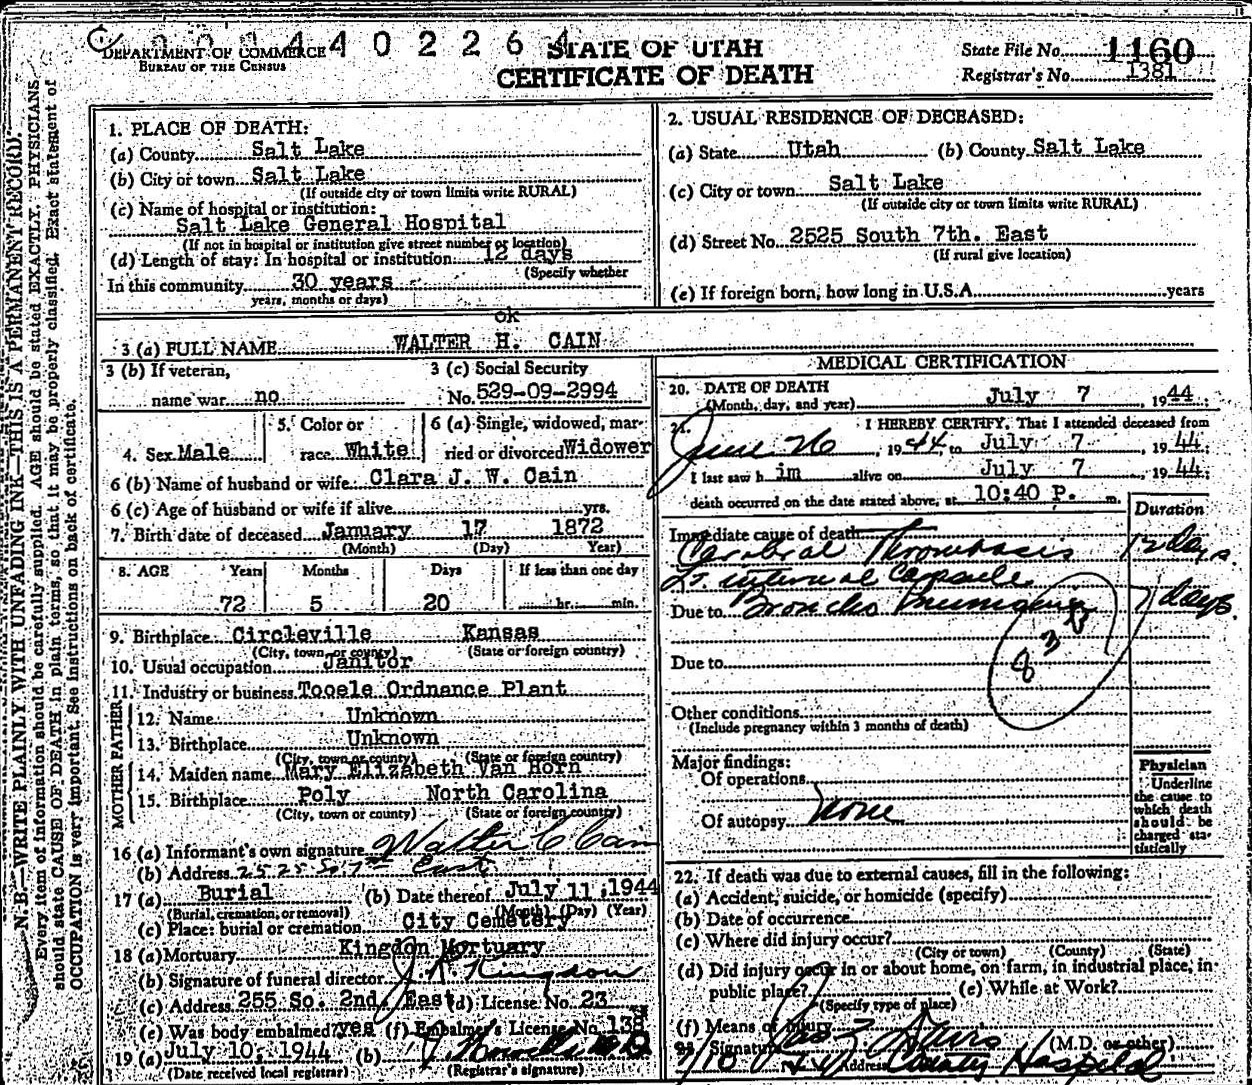 4 4 0 2 2 6 4
DEPARTMENT OF COMMERCE
BUREAU OF THE CENSUS
STATE OF UTAH
CERTIFICATE OF DEATH
State File No. 1160
Registrar's No. 1381
N.B.—WRITE PLAINLY WITH UNFADING INK—THIS IS A PERMANENT RECORD.
Every item of information should be carefully supplied. AGE should be stated EXACTLY. PHYSICIANS
should state CAUSE OF DEATH in plain terms, so that it may be properly classified. Exact statement of
OCCUPATION is very important. See instructions on back of certificate.
1. PLACE OF DEATH:
(a) County Salt Lake
(b) City or town Salt Lake
(If outside city or town limits write RURAL)
(c) Name of hospital or institution:
Salt Lake General Hospital
(If not in hospital or institution give street number or location)
(d) Length of stay: In hospital or institution 12 days
(Specify whether
In this community 30 years
years, months or days)
2. USUAL RESIDENCE OF DECEASED:
(a) State Utah (b) County Salt Lake
(c) City or town Salt Lake
(If outside city or town limits write RURAL)
(d) Street No. 2525 South 7th. East
(If rural give location)
(e) If foreign born, how long in U.S.A. years
ok
3 (a) FULL NAME WALTER H. CAIN
3 (b) If veteran,
name war no
3 (c) Social Security
No. 529-09-2994
4. Sex Male
5. Color or
race White
6 (a) Single, widowed, mar-
ried or divorced Widower
6 (b) Name of husband or wife Clara J. W. Cain
6 (c) Age of husband or wife if alive yrs.
7. Birth date of deceased January 17 1872
(Month) (Day) Year)
8. AGE Years Months Days If less than one day
72 5 20 hr. min.
9. Birthplace Circleville Kansas
(City, town, or county) (State or foreign country)
10. Usual occupation Janitor
11. Industry or business Tooele Ordnance Plant
FATHER
12. Name Unknown
13. Birthplace Unknown
(City, town or county) (State or foreign country)
MOTHER
14. Maiden name Mary Elizabeth Van Horn
15. Birthplace Poly North Carolina
(City, town or county) (State or foreign country)
16 (a) Informant's own signature Walter C Cain
(b) Address 2525 So. 7th East
17 (a) Burial (b) Date thereof July 11, 1944
(Burial, cremation, or removal) (Month) (Day) (Year)
(c) Place: burial or cremation City Cemetery
18 (a) Mortuary Kingdon Mortuary
(b) Signature of funeral director J. R. Kingdon
(c) Address 255 So. 2nd. East (d) License No. 23
(e) Was body embalmed? yes (f) Embalmer's License No.
19 (a) July 10, 1944 (b)
(Date received local registrar) (Registrar's signature)
MEDICAL CERTIFICATION
20. DATE OF DEATH
(Month, day, and year) July 7, 1944;
21. I HEREBY CERTIFY, That I attended deceased from
June 26, 1944, to July 7, 1944;
I last saw h im alive on July 7, 1944;
death occurred on the date stated above, at 10:40 P. m.
Duration
Immediate cause of death
Cerebral Thrombosis 12 days
Lt. internal Capsule
Due to Broncho Pneumonia 7 days
83
Due to
Other conditions
(Include pregnancy within 3 months of death)
Major findings:
Of operations
Of autopsy none
Physician
Underline
the cause to
which death
should be
charged sta-
tistically
22. If death was due to external causes, fill in the following:
(a) Accident, suicide, or homicide (specify)
(b) Date of occurrence
(c) Where did injury occur?
(City or town) (County) (State)
(d) Did injury occur in or about home, on farm, in industrial place, in
public place? (e) While at Work?
(Specify type of place)
(f) Means of Injury
23. Signature Davis (M.D. or other)
Address County Hospital